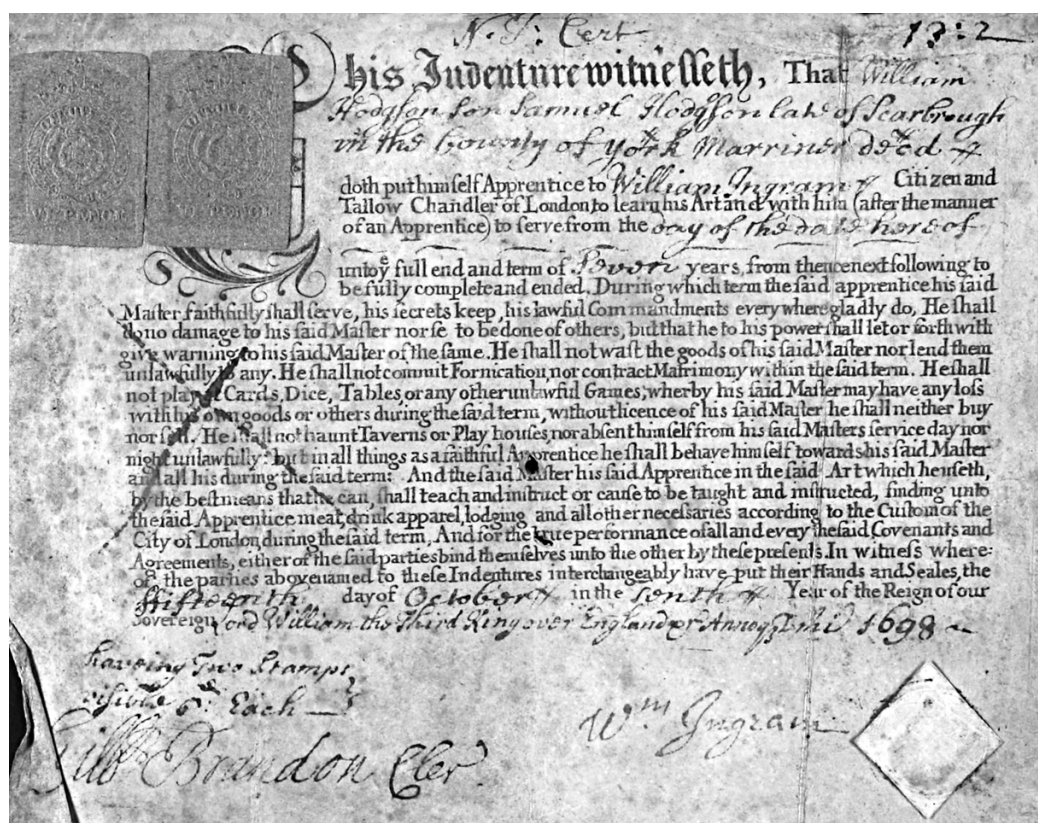 N. F: Cert
13:2
This Indenture witnesseth, That William
Hodgson son Samuel Hodgson late of Scarbrough
in the County of york Marriner decd
doth put himself Apprentice to William Ingram Citizen and
Tallow Chandler of London to learn his Art and with him (after the manner
of an Apprentice) to serve from the day of the date hereof
unto yᵉ full end and term of Seven years, from thence next following to
be fully complete and ended, During which term the said apprentice his said
Master faithfully shall serve, his secrets keep, his lawful Commandments every where gladly do, He shall
do no damage to his said Master nor se to be done of others, but that he to his power shall let or forthwith
give warning to his said Master of the same. He shall not wast the goods of his said Master nor lend them
unlawfully to any. He shall not commit Fornication, nor contract Matrimony within the said term. He shall
not play at Cards, Dice, Tables, or any other unlawful Games, wherby his said Master may have any loss
with his own goods or others during the said term, without licence of his said Master he shall neither buy
nor sell. He shall not haunt Taverns or Play houses, nor absent himself from his said Masters service day nor
night unlawfully: but in all things as a faithful Apprentice he shall behave himself towards his said Master
and all his during the said term: And the said Master his said Apprentice in the said Art which he useth,
by the best means that he can, shall teach and instruct or cause to be taught and instructed, finding unto
the said Apprentice meat, drink apparel, lodging and all other necessaries according to the Custom of the
City of London, during the said term, And for the true performance of all and every the said Covenants and
Agreements, either of the said parties bind themselves unto the other by these presents. In witness where:
of the parties abovenamed to these Indentures interchangeably have put their Hands and Seales, the
ffifteenth day of October in the tenth Year of the Reign of our
Sovereign Lord William the Third King over England &c Annoq Dni 1698
haveing Two Stamps
visible 6d Each
Gilbt Brandon Cler
Wm Ingram